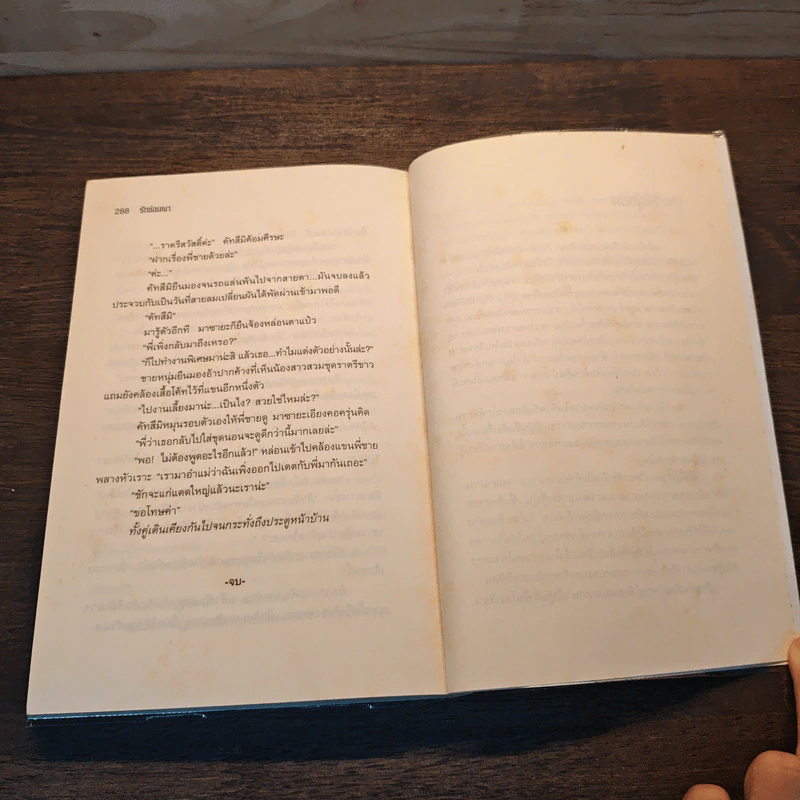 288 รักซ่อนเงา
"...ราตรีสวัสดิ์ค่ะ" คัทสึมิค้อมศีรษะ
"ฝากเรื่องพี่ชายด้วยล่ะ"
"ค่ะ..."
คัทสึมิยืนมองจนรถแล่นพ้นไปจากสายตา...มันจบลงแล้ว
ประจวบกับเป็นวันที่สายลมเปลี่ยนผันได้พัดผ่านเข้ามาพอดี
"คัทสึมิ"
มารู้ตัวอีกที มาซายะก็ยืนจ้องหล่อนตาแป๋ว
"พี่เพิ่งกลับมาถึงเหรอ?"
"ก็ไปทำงานพิเศษมาน่ะสิ แล้วเธอ...ทำไมแต่งตัวอย่างนั้นล่ะ?"
ชายหนุ่มยืนมองอ้าปากค้างที่เห็นน้องสาวสวมชุดราตรีขาว
แถมยังคล้องเสื้อโค้ทไว้ที่แขนอีกหนึ่งตัว
"ไปงานเลี้ยงมาน่ะ...เป็นไง? สวยใช่ไหมล่ะ?"
คัทสึมิหมุนรอบตัวเองให้พี่ชายดู มาซายะเอียงคอครุ่นคิด
"พี่ว่าเธอกลับไปใส่ชุดนอนจะดูดีกว่านี้มากเลยล่ะ"
"พอ! ไม่ต้องพูดอะไรอีกแล้ว!" หล่อนเข้าไปคล้องแขนพี่ชาย
พลางหัวเราะ "เรามาอำแม่ว่าฉันเพิ่งออกไปเดตกับพี่มากันเถอะ"
"ชักจะแก่แดดใหญ่แล้วนะเราน่ะ"
"ขอโทษค่ำ"
ทั้งคู่เดินเคียงกันไปจนกระทั่งถึงประตูหน้าบ้าน
-จบ-